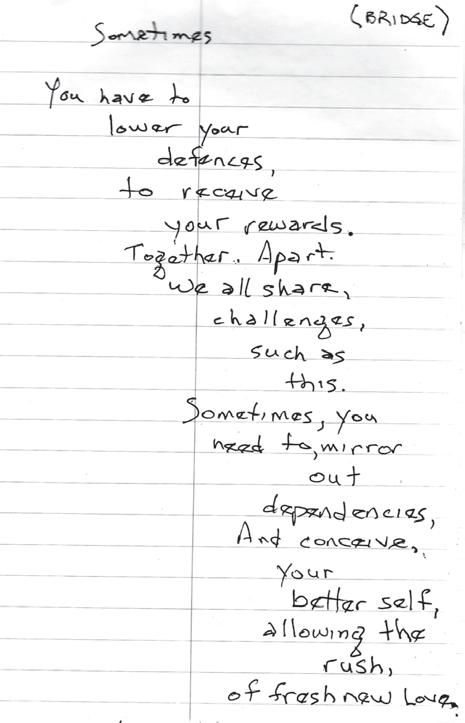 (BRIDGE)
Sometimes
You have to
lower your
defences,
to receive
your rewards.
Together.. Apart.
We all share,
challenges,
such as
this.
Sometimes, you
need to, mirror
out
dependencies,
And conceive,
your
better self,
allowing the
rush,
of fresh new Love.